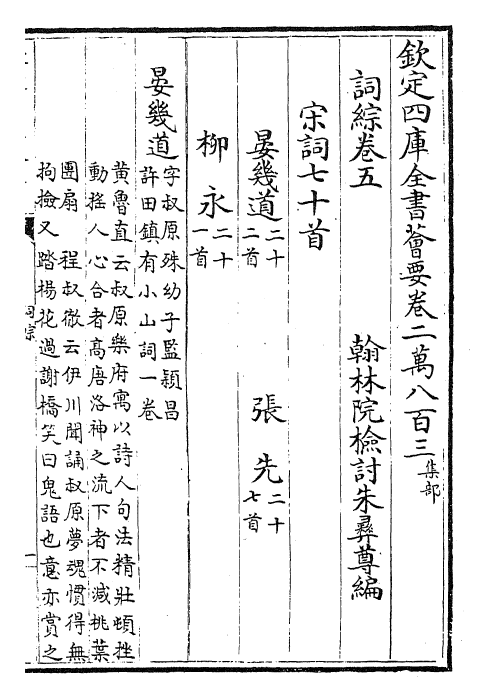 欽定四庫全書薈要卷二萬八百三集部
詞綜卷五
翰林院檢討朱彝尊編
宋詞七十首
晏幾道二十二首
張先二十七首
柳永二十一首
晏幾道字叔原殊幼子監潁昌許田鎮有小山詞一卷
黃魯直云叔原樂府寓以詩人句法精壯頓挫
動揺人心合者高唐洛神之流下者不減桃葉
團扇 程叔微云伊川聞誦叔原夢魂慣得無
拘撿又踏楊花過謝橋笑曰鬼語也意亦賞之
詞綜
一